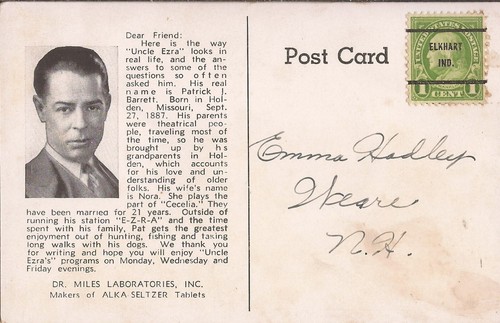 Dear Friend:
Here is the way
"Uncle Ezra" looks in
real life, and the an-
swers to some of the
questions so often
asked him. His real
name is Patrick J.
Barrett. Born in Hol-
den, Missouri, Sept.
27, 1887. His parents
were theatrical peo-
ple, traveling most of
the time, so he was
brought up by his
grandparents in Hol-
den, which accounts
for his love and un-
derstanding of older
folks. His wife's name
is Nora. She plays the
part of "Cecelia." They
have been married for 21 years. Outside of
running his station "E-Z-R-A" and the time
spent with his family, Pat gets the greatest
enjoyment out of hunting, fishing and taking
long walks with his dogs. We thank you
for writing and hope you will enjoy "Uncle
Ezra's" programs on Monday, Wednesday and
Friday evenings.
DR. MILES LABORATORIES, INC.
Makers of ALKA-SELTZER Tablets
Post Card
ELKHART
IND.
1 CENT 1
Emma Hadley
Weare
N.H.